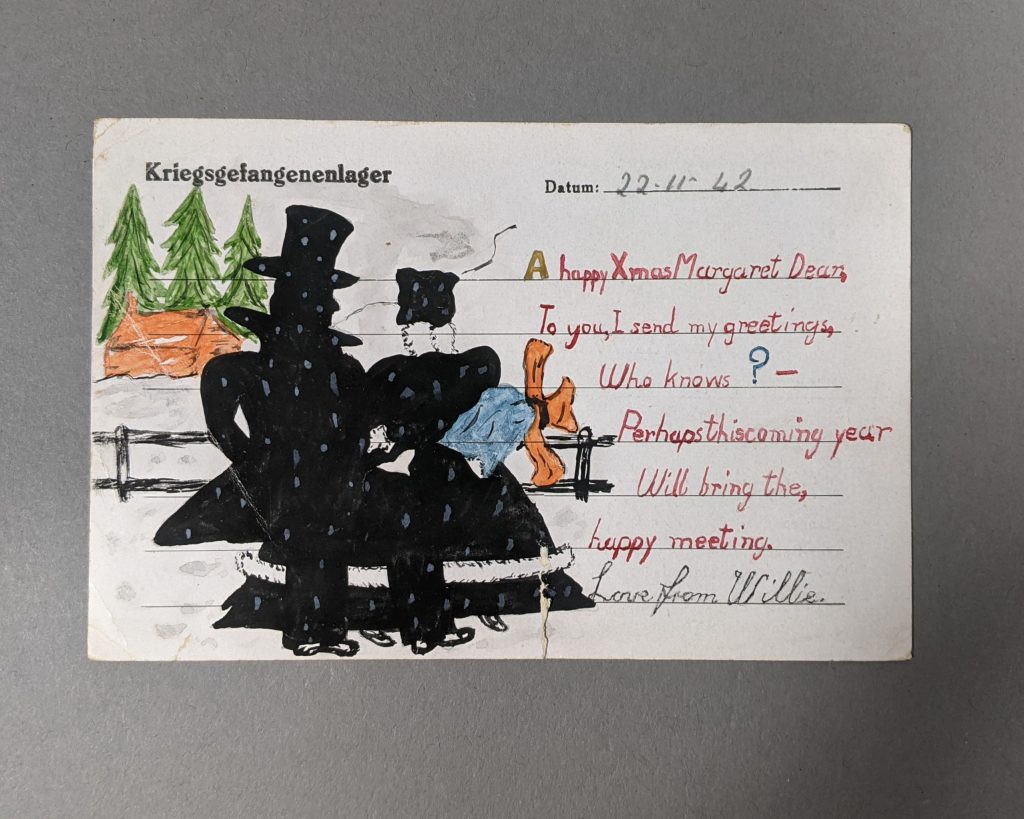 Kriegsgefangenenlager
Datum: 22-11-42
A happy Xmas Margaret Dear,
To you, I send my greetings,
Who knows ? –
Perhaps this coming year
Will bring the,
happy meeting.
Love from Willie.